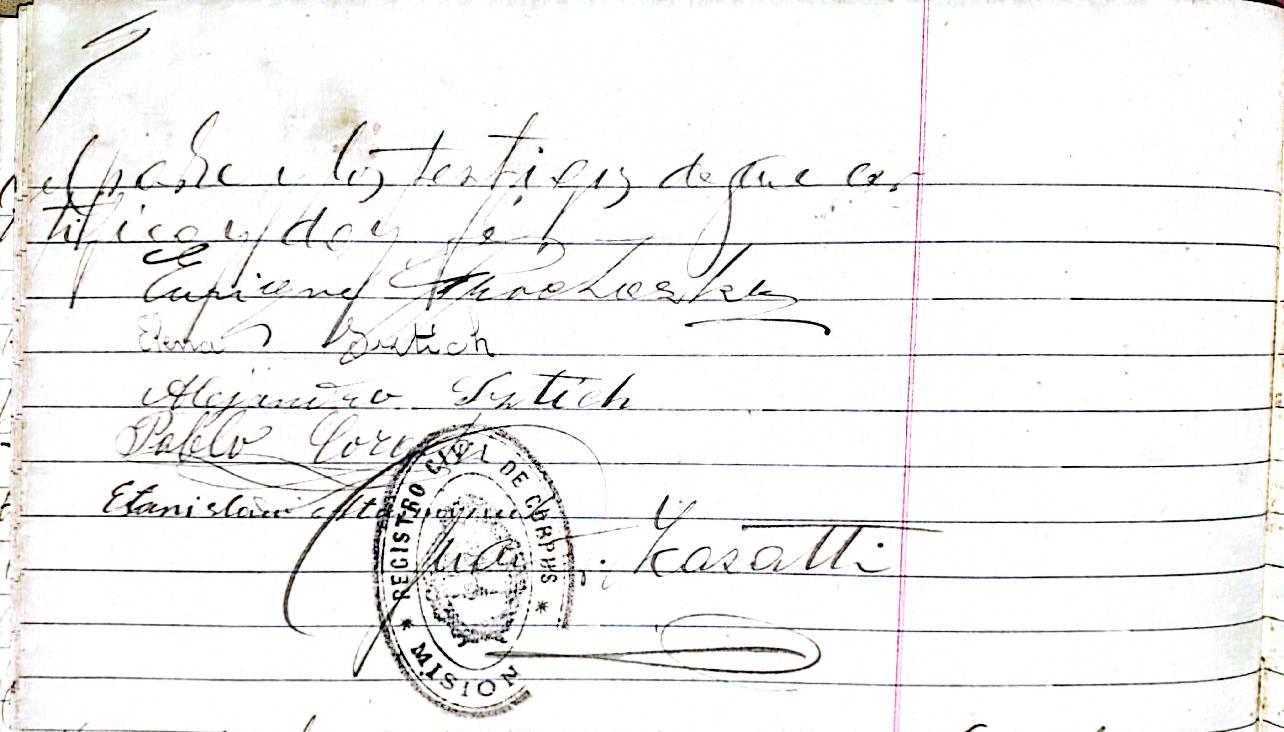 el padre i los testigos de que cer
tifico y doy fé
Elena Sytich
Alejandro Sytich
Pablo
Estanislao
Juan Kasatti
REGISTRO CIVIL DE CORPUS
* MISION *